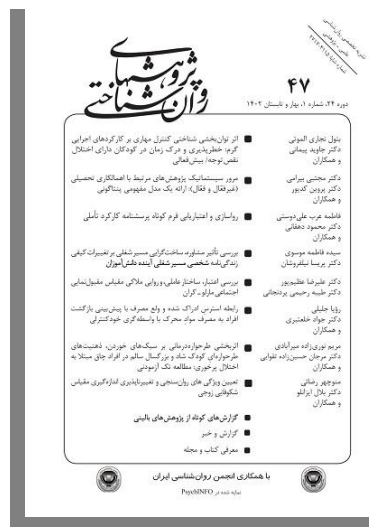 نشریه تخصصی روان‌شناسی
علمی - پژوهشی
پژوهشهای
روان‌شناختی
۴۷
دوره ۲۴، شماره ۱، بهار و تابستان ۱۴۰۲
بتول نجاری الموتی
دکتر جاوید پیمانی
و همکاران
اثر توان‌بخشی شناختی کنترل مهاری بر کارکردهای اجرایی
گرم: خطرپذیری و درک زمان در کودکان دارای اختلال
نقص‌توجه/ بیش‌فعالی
دکتر مجتبی بیرامی
دکتر پروین کدیور
و همکاران
مرور سیستماتیک پژوهش‌های مرتبط با اهمالکاری تحصیلی
(غیرفعّال و فعّال): ارائه یک مدل مفهومی پنتاگونی
فاطمه عرب علی‌دوستی
دکتر محمود دهقانی
و همکاران
رواسازی و اعتباریابی فرم کوتاه پرسشنامه کارکرد تأملی
سیده فاطمه موسوی
دکتر پریسا نیلفروشان
بررسی تأثیر مشاوره، ساخت‌گرایی مسیر شغلی بر تغییرات کیفی
زندگی‌نامه شخصی مسیر شغلی آینده دانش‌آموزان
دکتر علیرضا عظیم‌پور
دکتر طیبه رحیمی پردنجانی
بررسی اعتبار، ساختار عاملی، و روایی ملاکی مقیاس مقبول‌نمایی
اجتماعی مارلو ـ کران
رؤیا جلیلی
دکتر جواد خلعتبری
و همکاران
رابطه استرس ادراک شده و ولع مصرف با پیش‌بینی بازگشت
افراد به مصرف مواد محرک با واسطه‌گری خودکنترلی
مریم نوری‌زاده میرآبادی
دکتر مرجان حسین‌زاده تقوایی
و همکاران
اثربخشی طرحواره‌درمانی بر سبک‌های خوردن، ذهنیت‌های
طرحواره‌ای کودک شاد و بزرگسال سالم در افراد چاق مبتلا به
اختلال پرخوری: مطالعه تک آزمودنی
منوچهر رضائی
دکتر بلال ایزانلو
و همکاران
تعیین ویژگی های روان‌سنجی و تغییرناپذیری اندازه‌گیری مقیاس
شکوفایی زوجی
گزارش‌های کوتاه از پژوهش‌های بالینی
گزارش و خبر
معرفی کتاب و مجله
با همکاری انجمن روان‌شناسی ایران
نمایه شده در PsychINFO